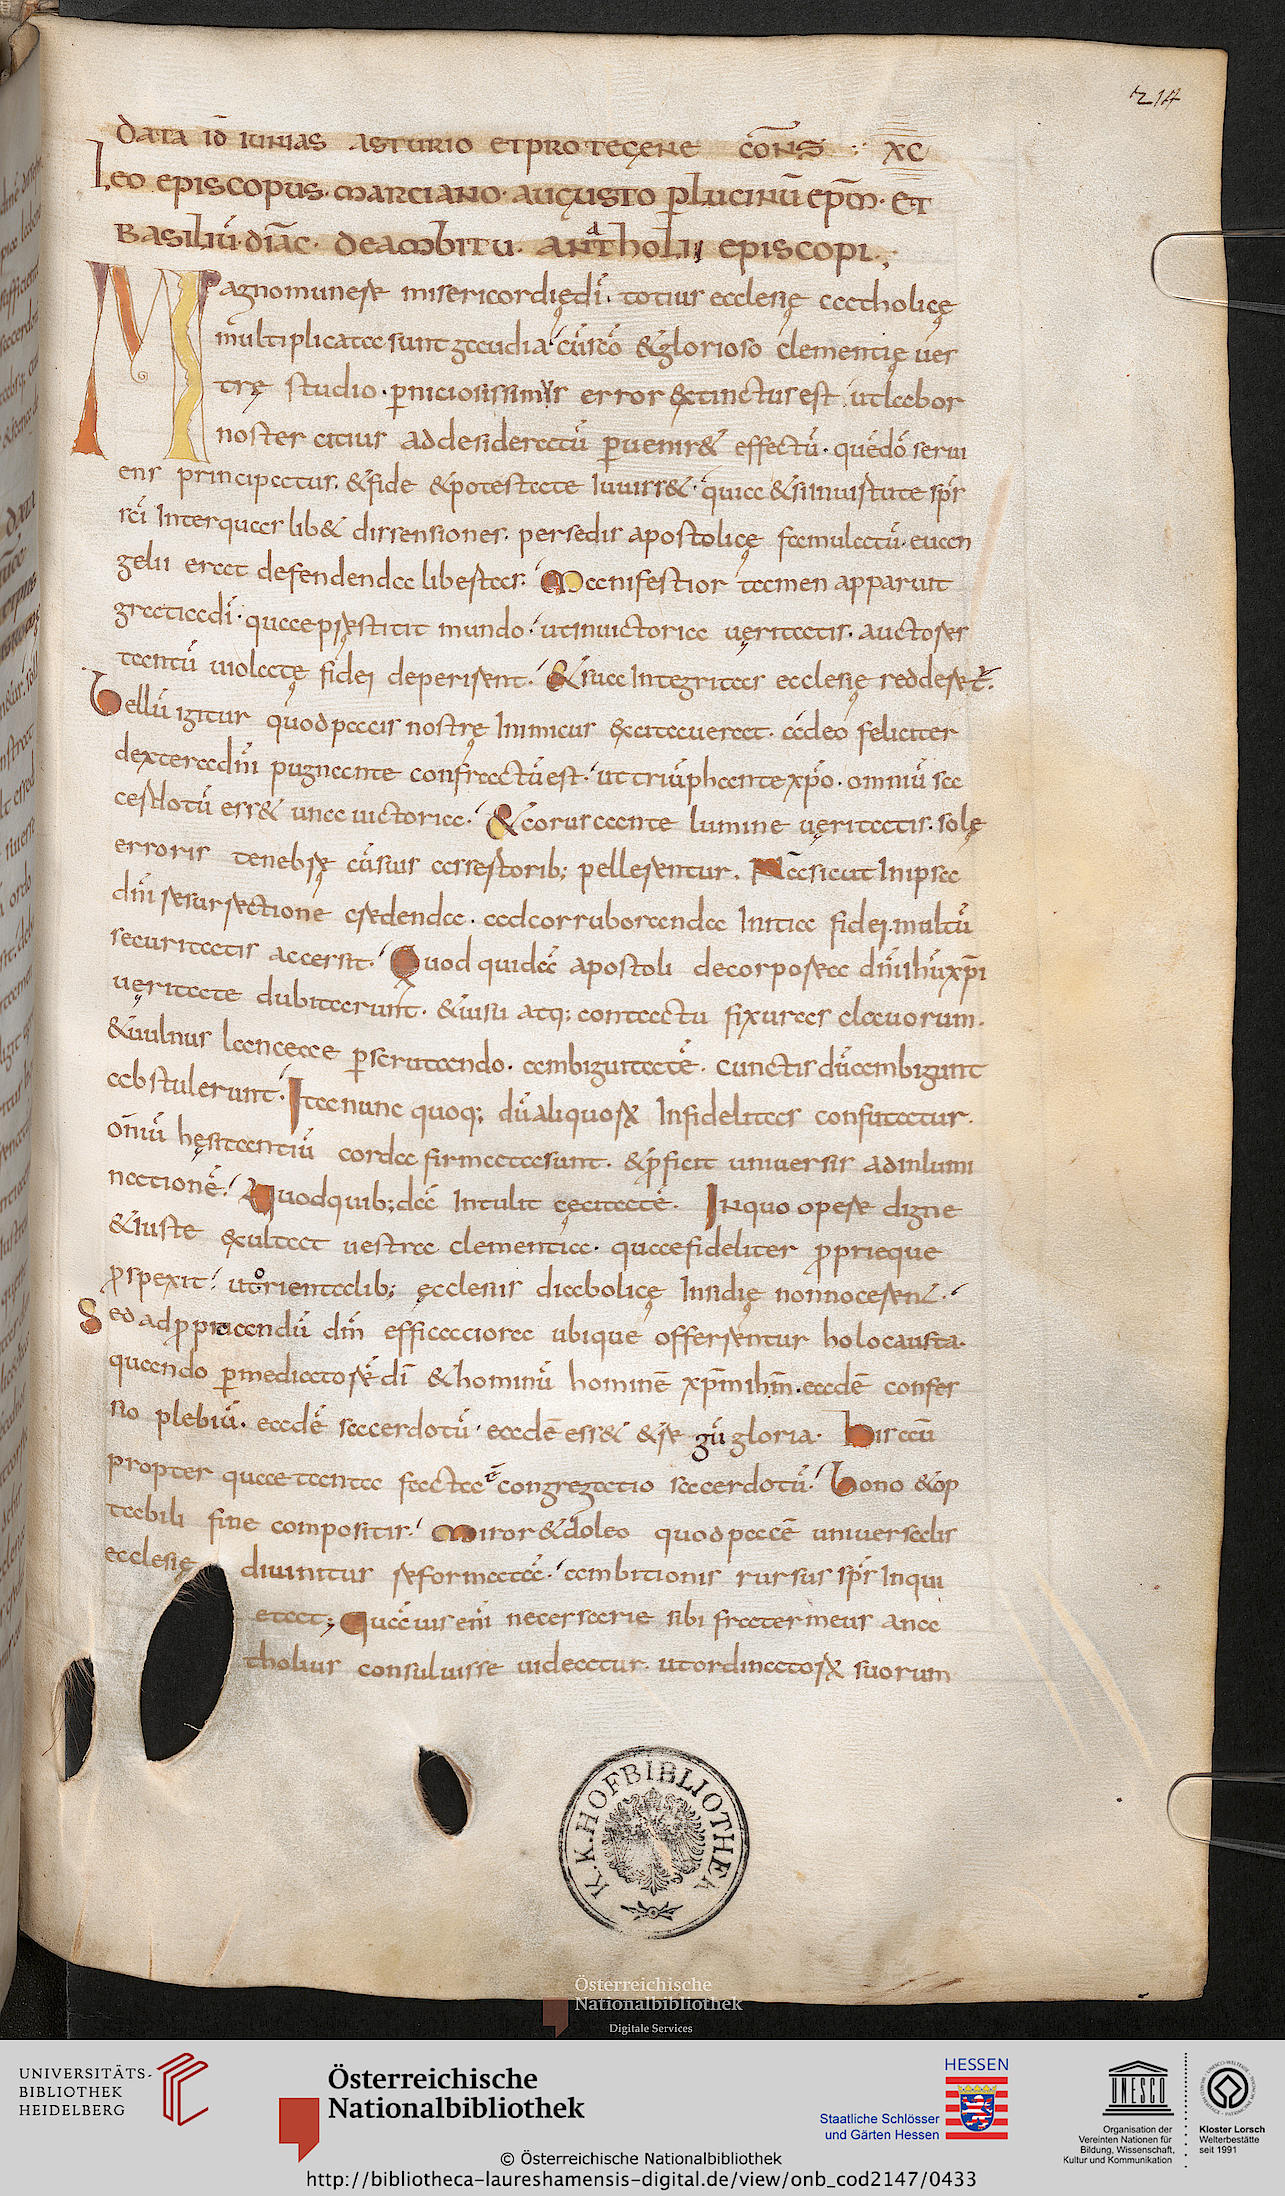 214
data id iunias asturio et protegene cons :· xc
Leo episcopus· marciano· augusto p lucinū epm̄· et
Basiliū· diac̄· de ambitu· anatholii episcopi·,·
Magno munere misericordię dī· totius ecclesię catholicę
multiplicata sunt gaudia· cū sco &glorioso clementię ues
trę studio· pniciosissimus error extinctus est· ut labor
noster citius ad desideratū pueniret effectū· quē dō serui
ens principatus· &fide &potestate iuuiss&· quia &si in uirtute sps
sci Interquas lib& dissensiones· per sedis apostolicę famulatū· euan
gelii erat defendenda libertas· Manifestior tamen apparuit
gratia dī· quae pręstitit mundo· ut in uictoria ueritatis· auctores
tantū uiolatę fidei deperirent· &sua Integritas ecclesię redderet·
bellū igitur quod pacis nostrę Inimicus excitauerat· adeo feliciter
dextera dn̄i pugnante confractū est· ut triūphante xpo· omniū sa
cerdotū ess& una uictoria· &corus cante lumine ueritatis· solę
erroris tenebrę cū suis assertorib; pellerentur· Nā sicut In ipsa
dn̄i resurrectione credenda· ad corroboranda Initia fidei· multū
securitatis accessit· Quod quidā apostoli de corporea dn̄i ihū xpi
ueritate dubitarunt· &uisu atq; contactu fixuras clauorum·
&uulnus lanceae pscrutando· ambiguitatē· cunctis dū ambigunt
abstulerunt· Ita nunc quoq; dū aliquorum Infidelitas confutatur·
om̄iū hęsitantiū corda firmata sunt· &pficit uniuersis ad inlumi
nationē· Quod quib;dā Intulit cęcitatē· In quo opere digne
&iuste exultat uestra clementia· quae fideliter proprieque
prospexit· ut orientalib; ęcclesiis diabolicę Insidię non nocerent·
Sed ad propitiandū dm̄ efficaciora ubique offerrentur holocausta·
quando p mediatorē dī &hominū hominē xpm̄ ihm̄· eadē confes
sio plebiū· eadē sacerdotū· eadē ess& &regū gloria· his cū
propter quae tanta facta ē congregatio sacerdotū· bono &op
tabili fine compositis· Miror &doleo quod pacē uniuersalis
ecclesię diuinitus reformatā· ambitionis rursus sps Inqui
etat; Quāuis enī necessarie sibi frater meus ana
tholius consuluisse uideatur· ut ordinatorum suorum
K.K. HOFBIBLIOTHEK
Österreichische
Nationalbibliothek
Digitale Services
UNIVERSITÄTS-
BIBLIOTHEK
HEIDELBERG
Österreichische
Nationalbibliothek
HESSEN
Staatliche Schlösser
und Gärten Hessen
UNESCO
Organisation der
Vereinten Nationen für
Bildung, Wissenschaft,
Kultur und Kommunikation
Kloster Lorsch
Welterbestätte
seit 1991
© Österreichische Nationalbibliothek
http://bibliotheca-laureshamensis-digital.de/view/onb_cod2147/0433